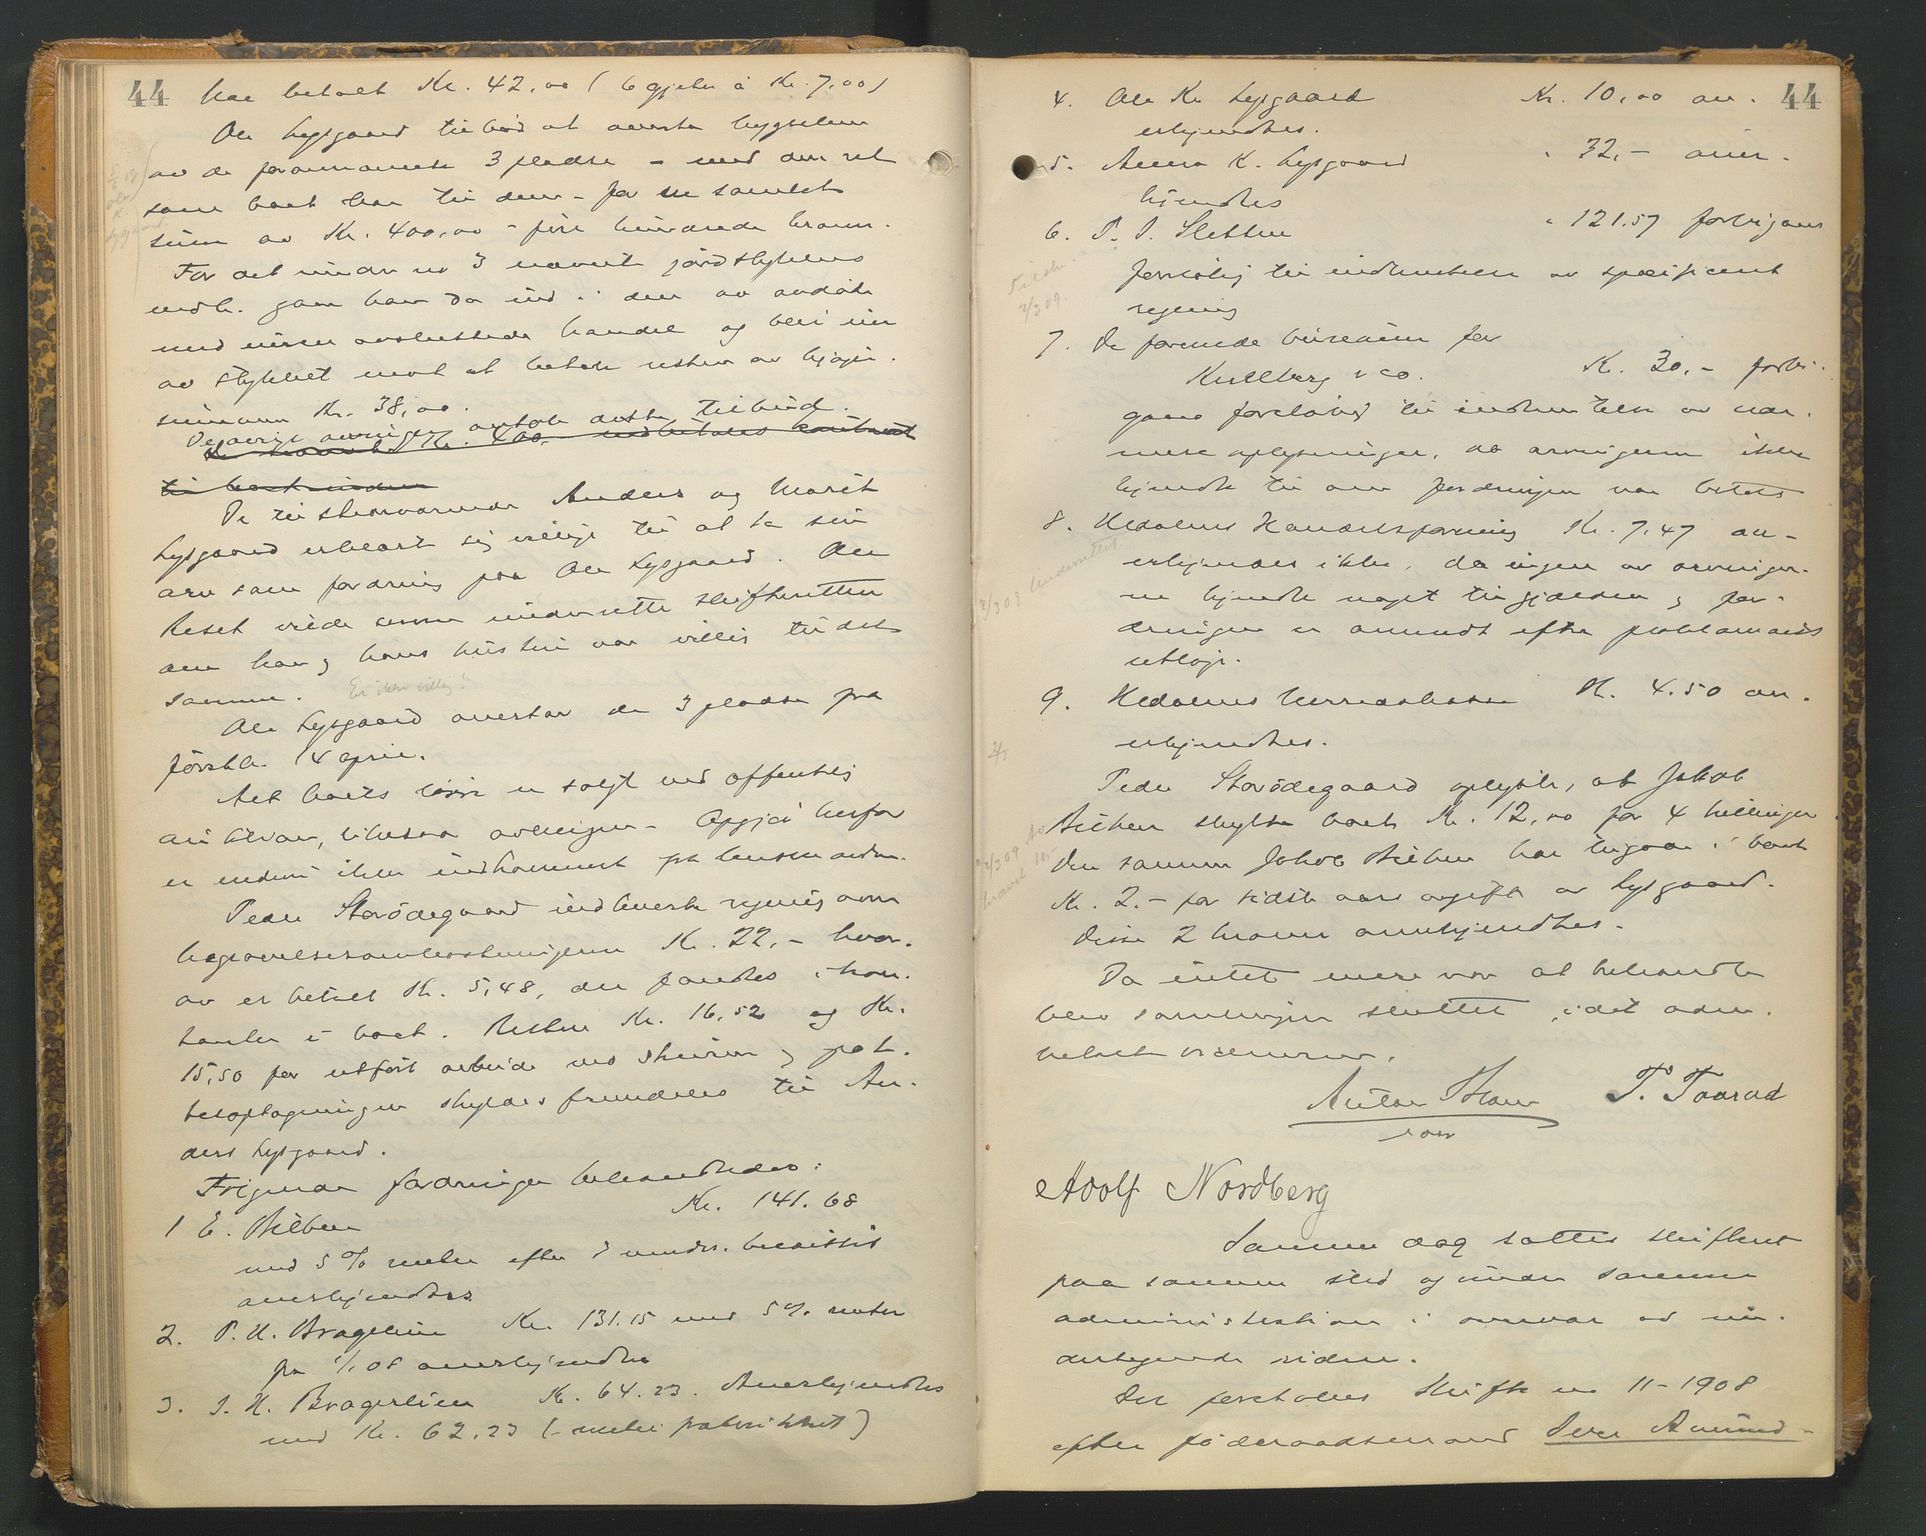 44 har betalt Kr. 42,00 (6 gjeter à Kr. 7,00)
Ole Lysgaard tilbød at overta bygselen
av de forannævnte 3 pladse – med den ret
som boet har til dem – for en samlet
sum av Kr. 400,00 – fire hundrede kroner.
For det under no 3 nævnte jordstykkes
vedk. gaar han da ind i den av avdøde
med eieren avsluttede handel og blir eier
av stykket mot at betale resten av kjøpe-
summen Kr. 38,00.
De øvrige arvinger antok dette tilbud.
Kr. 400,- indbetales kontant
De tilstedeværende Anders og Marit
Lysgaard erklærte sig villige til at ta sin
arv som fordring paa Ole Lysgaard. Ole
Reset vilde senere underrette skifteretten
om han og hans hustru var villig til det
samme. Er ikke villig!
Ole Lysgaard overtar de 3 pladse fra
førstk. 14 april.
Alt boets løsøre er solgt ved offentlig
auktion, likesaa avlingen. Opgjør herfor
er endnu ikke indkommet fra lensmanden.
Peder Storødegaard indleverte regning over
begravelsesomkostningerne Kr. 22,- hvor-
av er betalt Kr. 5,48, der fandtes i kon-
tanter i boet. Resten Kr. 16,52 og Kr.
15,50 for utført arbeide ved skuren og pot-
tesoptagningen skyldes fremdeles til An-
ders Lysgaard.
Følgende fordringer behandledes:
1 E. Bilben Kr. 141.68
med 5% renter efter 3 mndr. kredittid
anerkjendtes
2. P. H. Bragelien Kr. 131.15 med 5% renter
fra 1/1 08 anerkjendtes
3. I. H. Bragerlien Kr. 64.23. Anerkjendtes
med Kr. 62,23 (– renter fratrukket)
4. Ole Kr. Lysgaard Kr. 10,00 an- 44
erkjendtes.
5. Anna K. Lysgaard " 32,- aner-
kjendtes
6. P. I. Sletten " 121.57 forbigaaes
foreløbig til indhentelse av specificert
regning
2/3 09.
7. De forenede bureauer for
Kullberg & co. Kr. 30,- forbi-
gaaes foreløbig til indhentelse av nær-
mere oplysninger, da arvingerne ikke
kjendte til om fordringen var betalt
8. Hedalens Handelsforening Kr. 7,47 an-
erkjendes ikke, da ingen av arvinger-
ne kjendte noget til gjælden og for-
dringen er anmeldt efter proklamaets
utløp.
9. Hedalens Meieri Kr. 4.50 an-
erkjendtes.
Peder Storødegaard oplyste, at Jakob
Bilben skyldte boet Kr. 12,00 for 4 killinger
Den samme Jakob Bilben har tilgode i boet
Kr. 2.- for sidste aars avgift av Lysgaard.
Disse 2 kroner anerkjendtes.
Da intet mere var at behandle
blev samlingen sluttet, idet adm.
betalte vidnerne.
T. Taarud
Adolf Nordberg
Samme dag sattes skifteret
paa samme sted og under samme
administration i overvær av un-
dertegnede vidner.
Der foretoges Skifte no 11-1908
efter føderaadsmand Iver Amund-